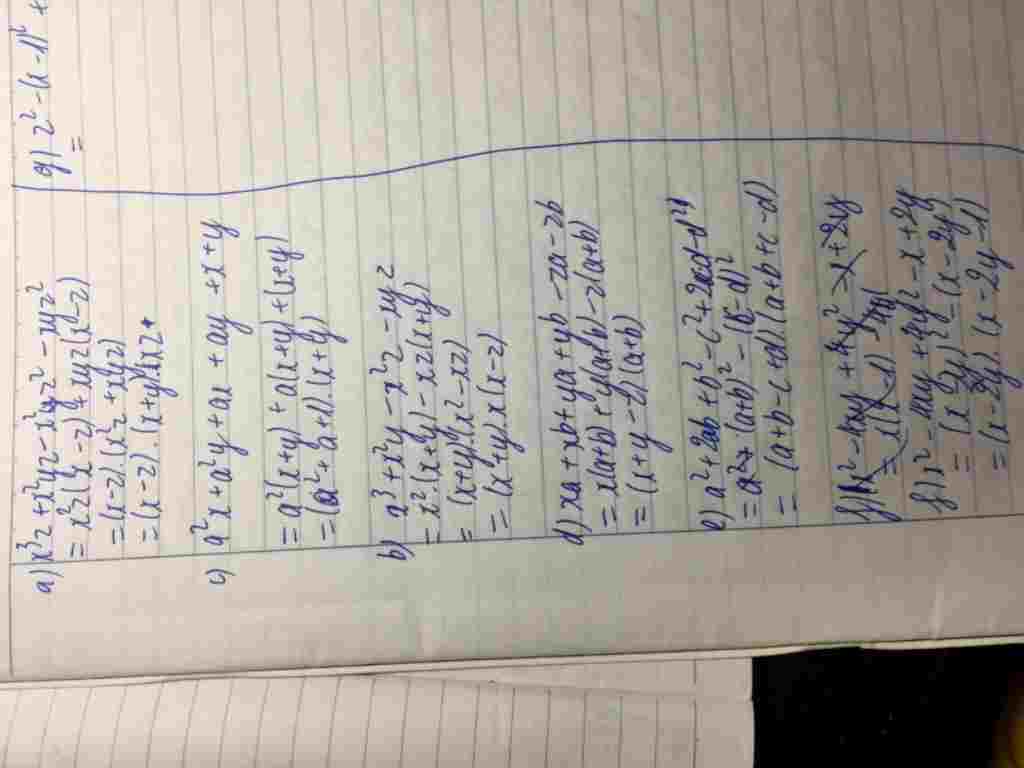 a) x³z + x²yz - x²z² - xyz²
= x²z(x - z) + xyz(x - z)
= (x - z).(x²z + xyz)
= (x - z).(x + y)(xz +
c) a²x + a²y + ax + ay + x + y
= a²(x+y) + a(x+y) + (x+y)
= (a² + a + 1).(x + y)
b) a³ + x²y - x²z - xyz
= x²(x+y) - xz(x+y)
= (x+y).(x² - xz)
= (x+y) x (x - z)
d) xa + xb + ya + yb - za - zb
= x(a+b) + y(a+b) - z(a+b)
= (x + y - z)(a+b)
e) a² + 2ab + b² - c² + 2cd - d²
= (a+b)² - (c - d)²
= (a+b - c + d)(a+b + c - d)
f) x² - 4xy + 4y² - x + 2y
f) x² - 4xy + 4y² - x + 2y
= (x - 2y)² - (x - 2y)
= (x - 2y).(x - 2y - 1)
g) z² - (x - 1)² +
=